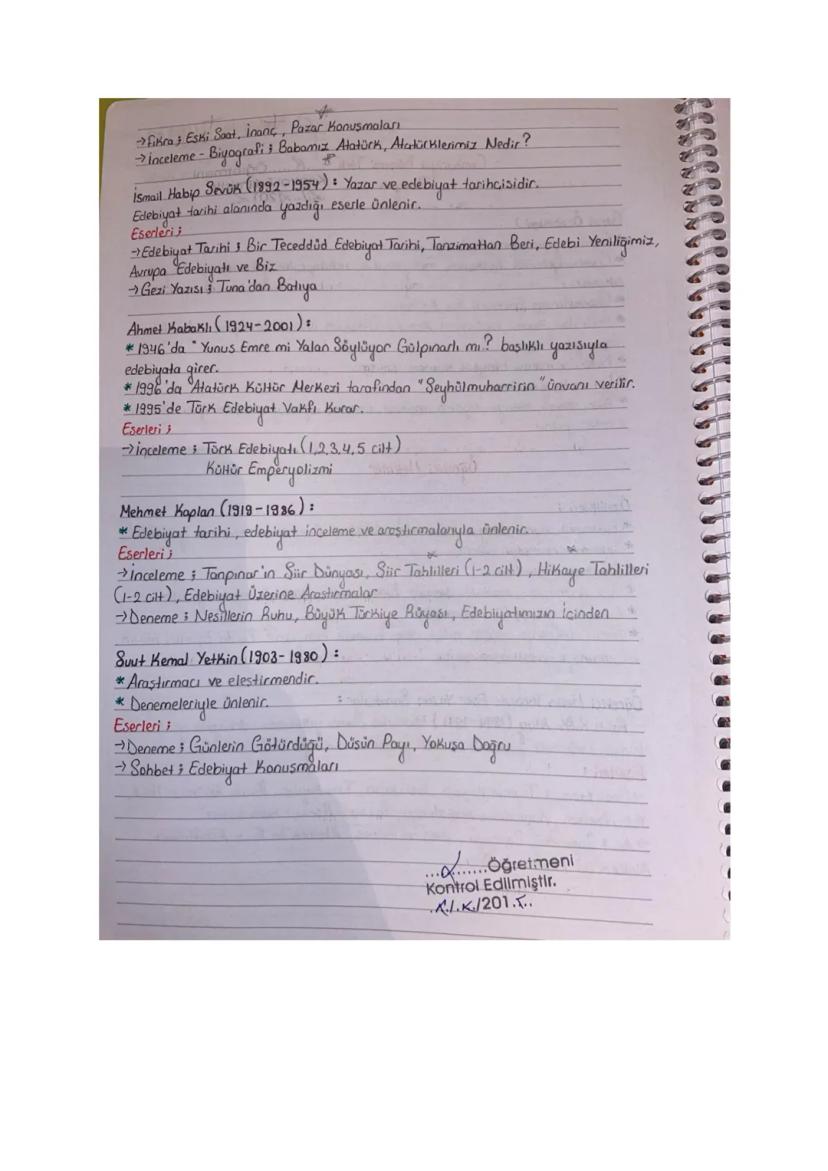 → Fıkra ; Eski Saat, İnanç, Pazar Konuşmaları
→ İnceleme - Biyografi ; Babamız Atatürk, Atatürklerimiz Nedir?
İsmail Habip Sevük (1892-1954) : Yazar ve edebiyat tarihcisidir.
Edebiyat tarihi alanında yazdığı eserle ünlenir.
Eserleri ;
→ Edebiyat Tarihi ; Bir Teceddüd Edebiyat Tarihi, Tanzimattan Beri, Edebi Yeniliğimiz,
Avrupa Edebiyatı ve Biz
→ Gezi Yazısı ; Tuna'dan Batıya
Ahmet Kabaklı (1924-2001) :
* 1946'da "Yunus Emre mi Yalan Söylüyor Gülpınarlı mı? başlıklı yazısıyla
edebiyata girer.
* 1996'da Atatürk Kültür Merkezi tarafından "Şeyhülmuharririn" ünvanı verilir.
* 1995'de Türk Edebiyat Vakfı Kurar.
Eserleri ;
→ İnceleme ; Türk Edebiyatı (1,2,3,4,5 cilt)
Kültür Emperyolizmi
Mehmet Kaplan (1919-1986) :
* Edebiyat tarihi, edebiyat inceleme ve araştırmalarıyla ünlenir.
Eserleri ;
→ İnceleme ; Tanpınar'ın Şiir Dünyası, Şiir Tahlilleri (1-2 cilt), Hikaye Tahlilleri
(1-2 cilt), Edebiyat Üzerine Araştırmalar
→ Deneme ; Nesillerin Ruhu, Büyük Türkiye Rüyası, Edebiyatımızın İçinden
Suut Kemal Yetkin (1903-1980) :
* Araştırmacı ve eleştirmendir.
* Denemeleriyle ünlenir.
Eserleri ;
→ Deneme ; Günlerin Götürdüğü, Düşün Payı, Yokuşa Doğru
→ Sohbet ; Edebiyat Konuşmaları
Öğretmeni
Kontrol Edilmiştir.
/201